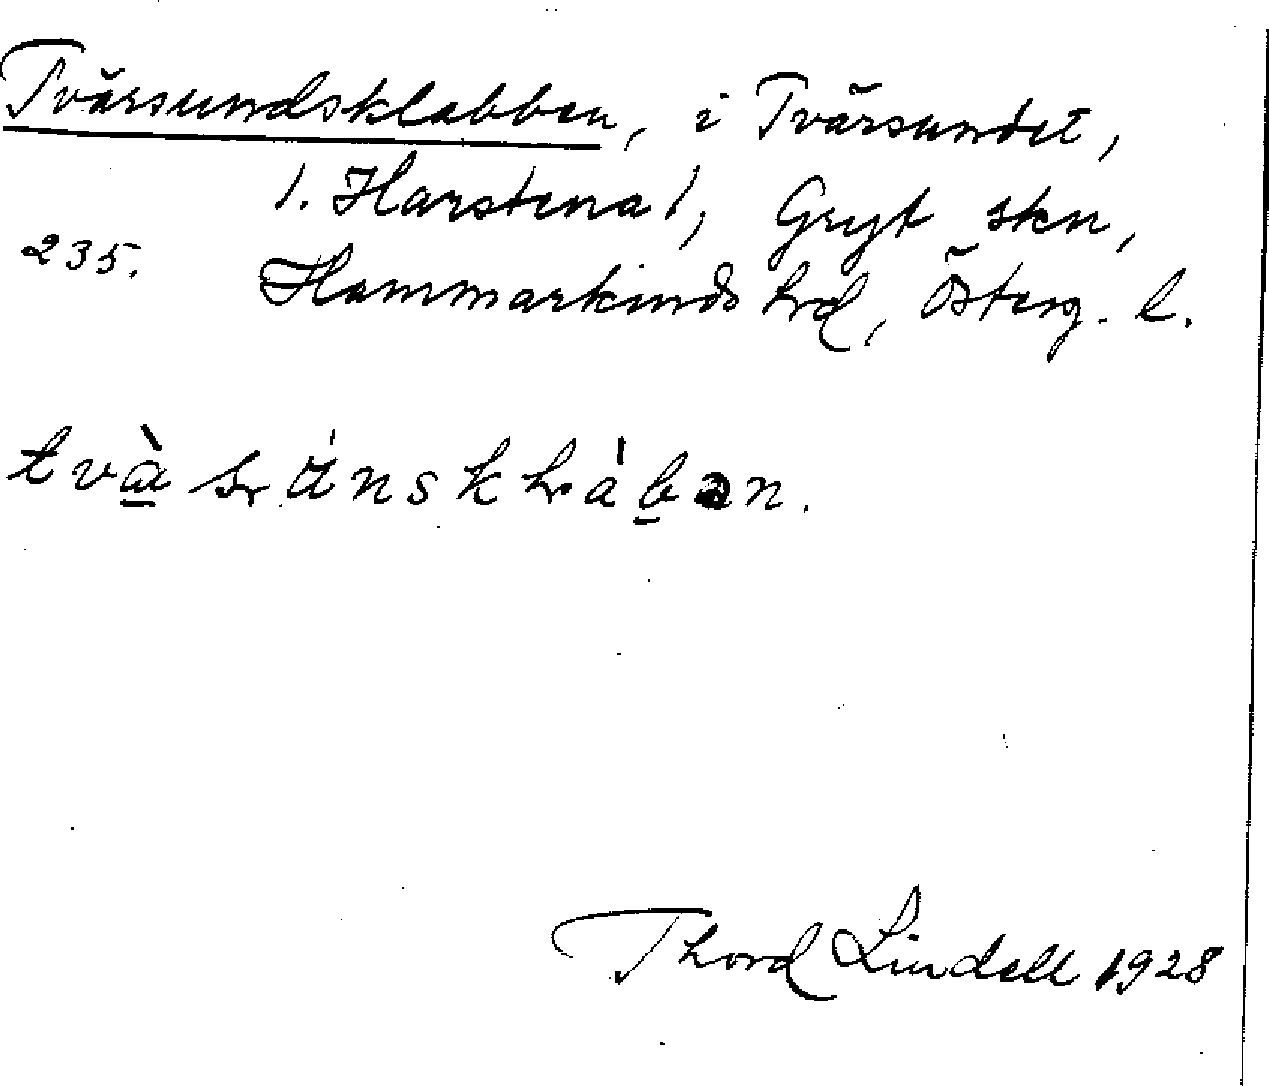 Tvärsundsklabben, i Tvärsundet,
/. Harstena /, Gryt skn,
235. Hammarkinds hrd, Österg. l.
Thord Lindell 1928